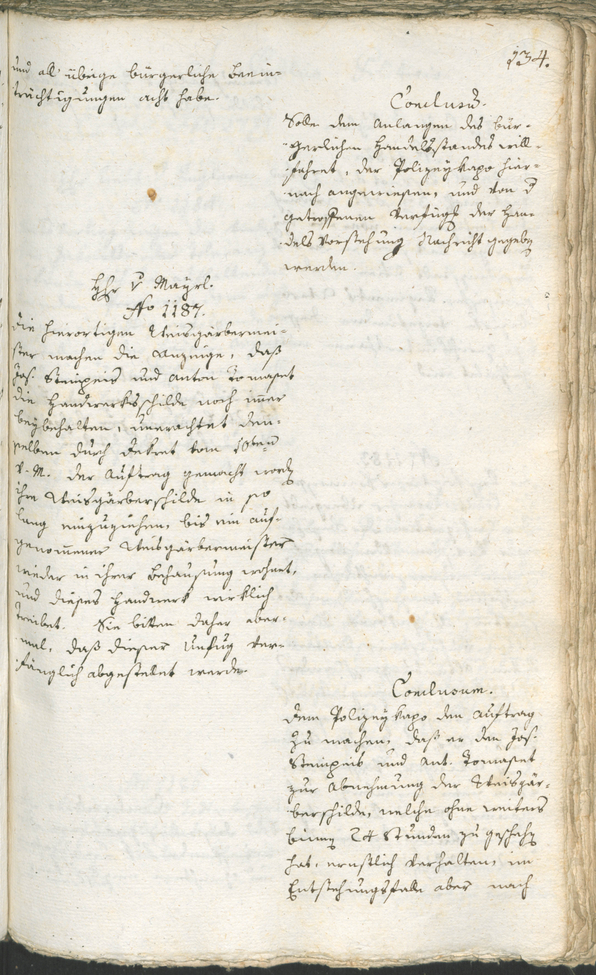 134.
und all übrige bürgerliche Beein-
trächtigungen acht habe.
Conclusum.
Solle dem Anlangen des bür-
gerlichen Handelsstandes will-
fahret, der Polizeykapo hier-
nach angewiesen, und von der
getroffenen Verfügung der Han-
dels Vorstehung Nachricht gegeben
werden.
Hr v Mayrl.
No 1187.
Die hierortigen Weisgärbermei-
ster machen die Anzeige, daß
Jos. Stempeis und Anton Tomaset
die Handwerksschilde noch immer
beybehalten, unerachtet den-
selben durch Dekret vom
v. M. der Auftrag gemacht worden
ihre Weisgärberschilde in so
lang einzuziehen, bis ein auf-
genommener Weisgärbermeister
wieder in ihrer Behausung wohnet,
und dieses Handwerk wirklich
treibet. Sie bitten daher aber-
mal, daß dieser Unfug ver-
fänglich abgestellet werde.
Conclusum.
Dem Polizeykapo den Auftrag
zu machen, daß er den Jos.
Stempeis und Ant. Tomaset
zur Abnehmung der Weisgär-
berschilde, welche ohne weiters
binnen 24 Stunden zu geschehen
hat, ernstlich verhalten, im
Entstehungsfalle aber nach